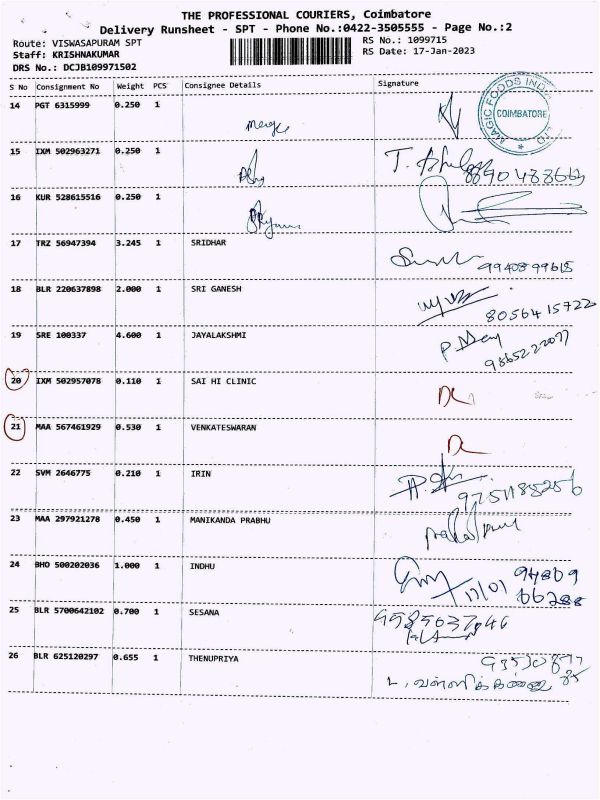 THE PROFESSIONAL COURIERS, Coimbatore
Delivery Runsheet - SPT - Phone No.:0422-3505555 - Page No.:2
Route: VISWASAPURAM SPT RS No.: 1099715
Staff: KRISHNAKUMAR RS Date: 17-Jan-2023
DRS No.: DCJB109971502
S No Consignment No Weight PCS Consignee Details Signature
14 PGT 6315999 0.250 1
MAGIC FOODS INDIA LTD
COIMBATORE
15 IXM 502963271 0.250 1
16 KUR 528615516 0.250 1
17 TRZ 56947394 3.245 1 SRIDHAR
9940899615
18 BLR 220637898 2.000 1 SRI GANESH
8056415722
19 SRE 100337 4.600 1 JAYALAKSHMI
9865222077
20 IXM 502957078 0.110 1 SAI HI CLINIC
DL
21 MAA 567461929 0.530 1 VENKATESWARAN
DL
22 SVM 2646775 0.210 1 IRIN
9751188256
23 MAA 297921278 0.450 1 MANIKANDA PRABHU
24 BHO 500202036 1.000 1 INDHU
17/01
25 BLR 5700642102 0.700 1 SESANA
26 BLR 625120297 0.655 1 THENUPRIYA